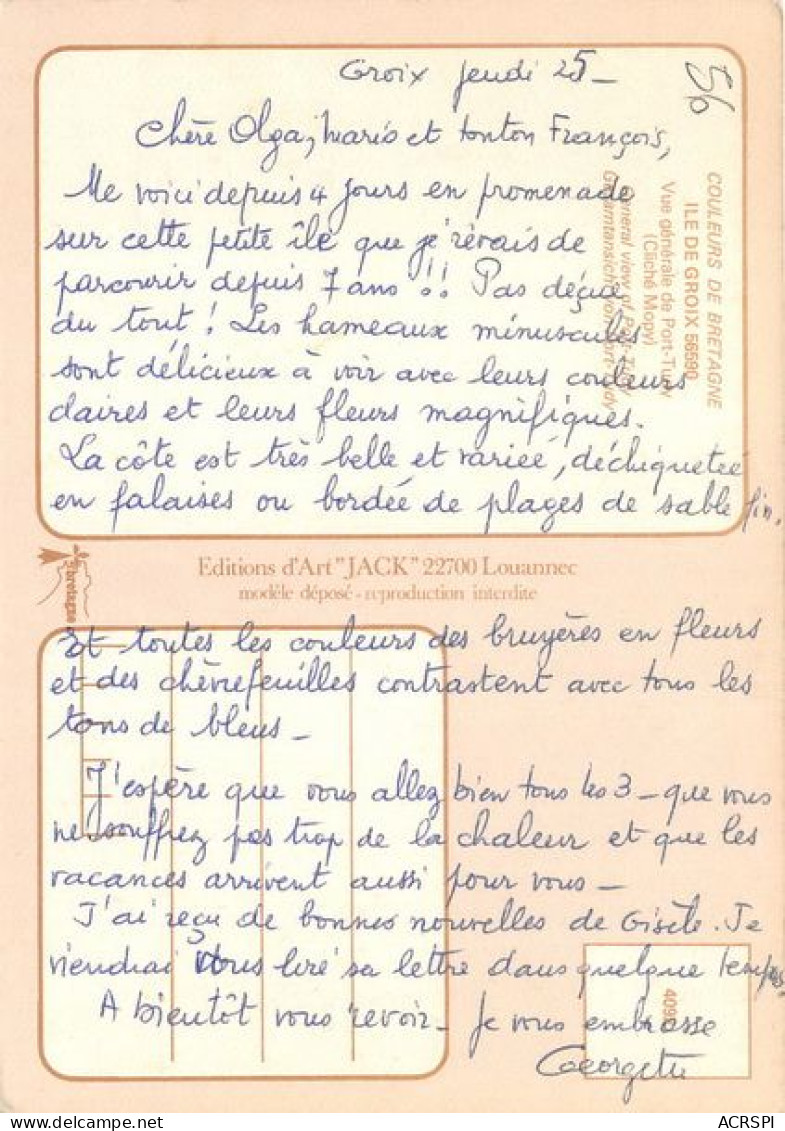 Groix jeudi 25 –
56
Chère Olga, maris et tonton François,
Me voici depuis 4 jours en promenade
sur cette petite île que je rêvais de
parcourir depuis 7 ans !! Pas déçue
du tout ! Les hameaux minuscules
sont délicieux à voir avec leurs couleurs
claires et leurs fleurs magnifiques.
La côte est très belle et variée, déchiquetée
en falaises ou bordée de plages de sable fin.
COULEURS DE BRETAGNE
ILE DE GROIX 56590
Vue générale de Port-Tudy
(Cliché Mopy)
General view of Port-Tudy
Gesamtansicht von Port-Tudy
Editions d'Art "JACK" 22700 Louannec
modèle déposé - reproduction interdite
bretagne
Et toutes les couleurs des bruyères en fleurs
et des chèvrefeuilles contrastent avec tous les
tons de bleus –
J'espère que vous allez bien tous les 3 – que vous
ne souffrez pas trop de la chaleur et que les
vacances arrivent aussi pour vous –
J'ai reçu de bonnes nouvelles de Gisèle. Je
viendrai vous lire sa lettre dans quelque temps,
A bientôt vous revoir – Je vous embrasse
Georgette
409
ACRSPI